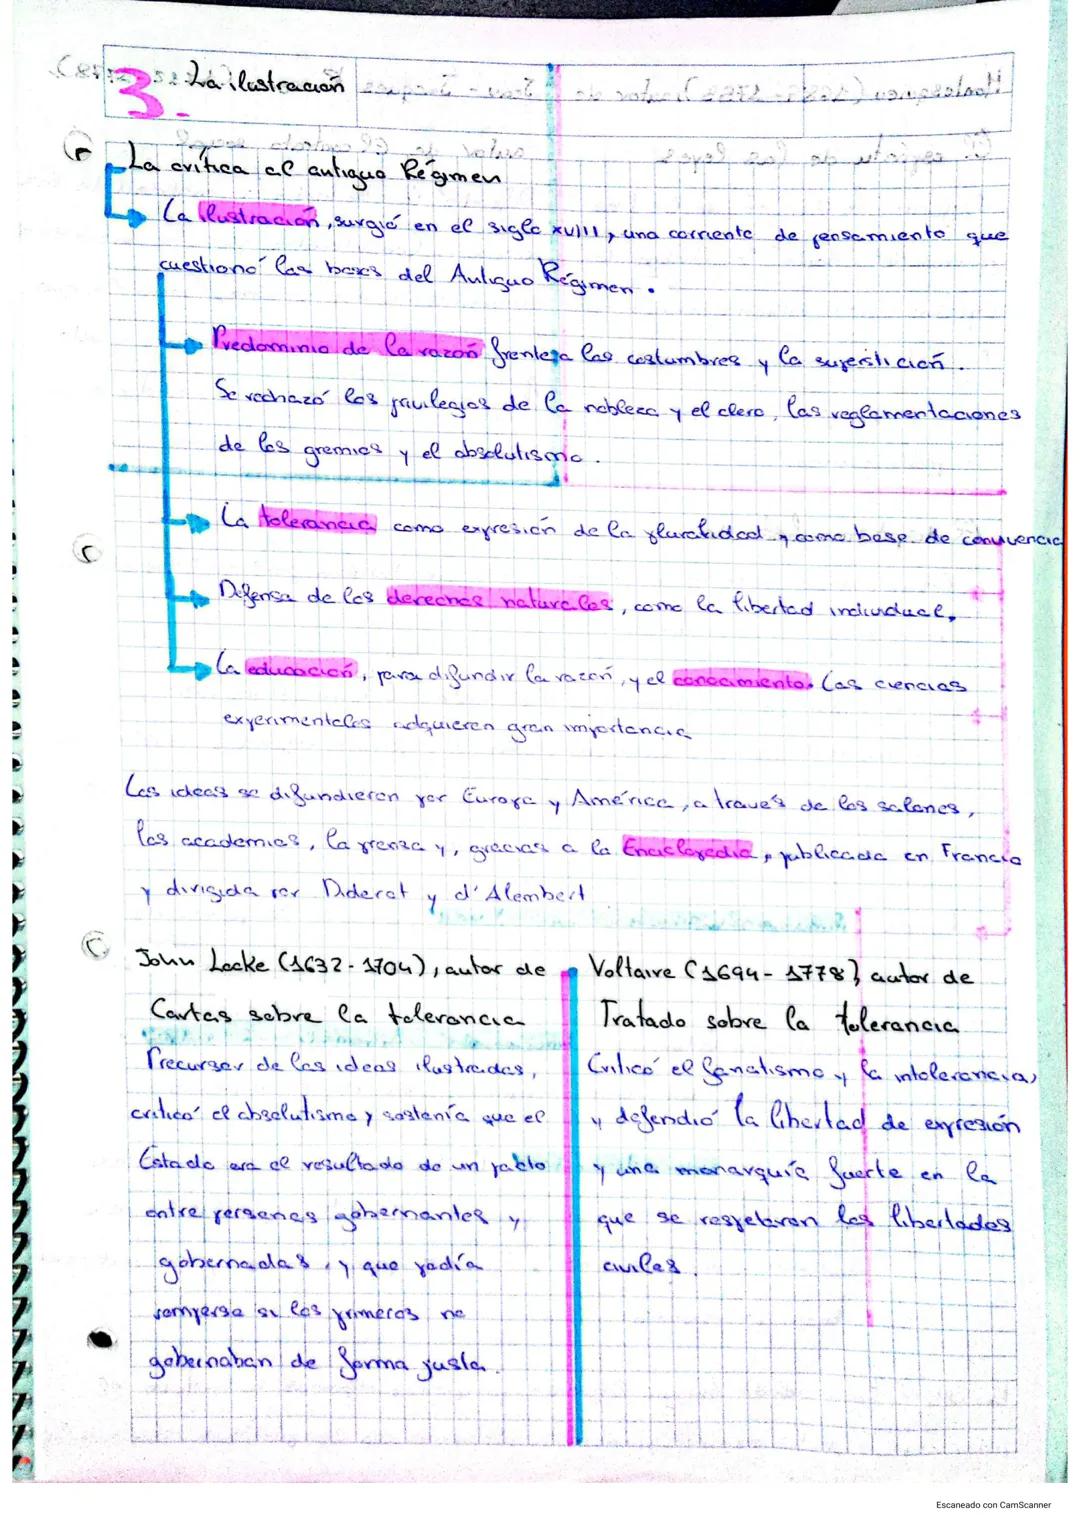 3. La ilustración
La crítica al antiguo Régimen
La ilustración, surgió en el siglo XVIII, una corriente de pensamiento que
cuestionó las bases del Antiguo Régimen.
Predominio de la razón frente a las costumbres y la superstición.
Se rechazó los privilegios de la nobleza y el clero, las reglamentaciones
de los gremios y el absolutismo.
La tolerancia como expresión de la pluralidad y como base de convivencia
Defensa de los derechos naturales, como la libertad individual.
La educación, para difundir la razón, y el conocimiento. Las ciencias
experimentales adquieren gran importancia
Las ideas se difundieron por Europa y América, a través de los salones,
las academias, la prensa y, gracias a la Enciclopedia, publicada en Francia
y dirigida por Diderot y d'Alembert
John Locke (1632-1704), autor de
Cartas sobre la tolerancia
Precursor de las ideas ilustradas,
criticó el absolutismo y sostenía que el
Estado era el resultado de un pacto
entre personas gobernantes y
gobernadas, y que podía
romperse si los primeros no
gobernaban de forma justa.
Voltaire (1694-1778), autor de
Tratado sobre la tolerancia
Criticó el fanatismo y la intolerancia,
y defendió la libertad de expresión
y una monarquía fuerte en la
que se respetaran las libertades
civiles.
Escaneado con CamScanner